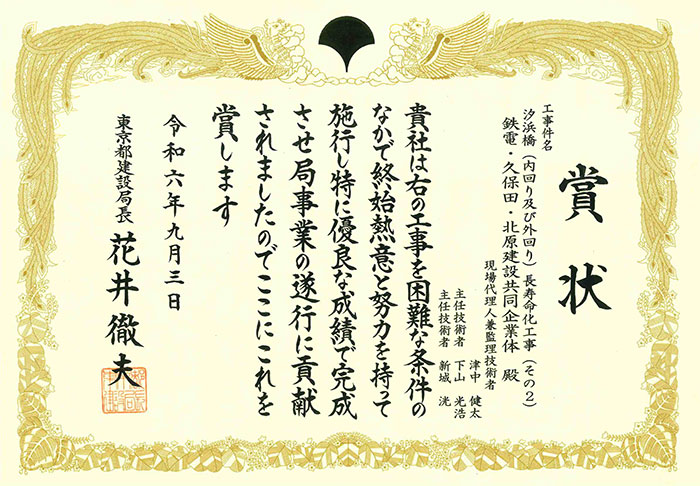 賞状
工事件名
汐浜橋（内回り及び外回り）長寿命化工事（その２）
鉄電・久保田・北原建設共同企業体 殿
現場代理人兼監理技術者 津中 健太
主任技術者 下山 光浩
主任技術者 新城 洸
貴社は右の工事を困難な条件の
なかで終始熱意と努力を持って
施行し特に優良な成績で完成
させ局事業の遂行に貢献
されましたのでここにこれを
賞します
令和六年九月三日
東京都建設局長 花井徹夫